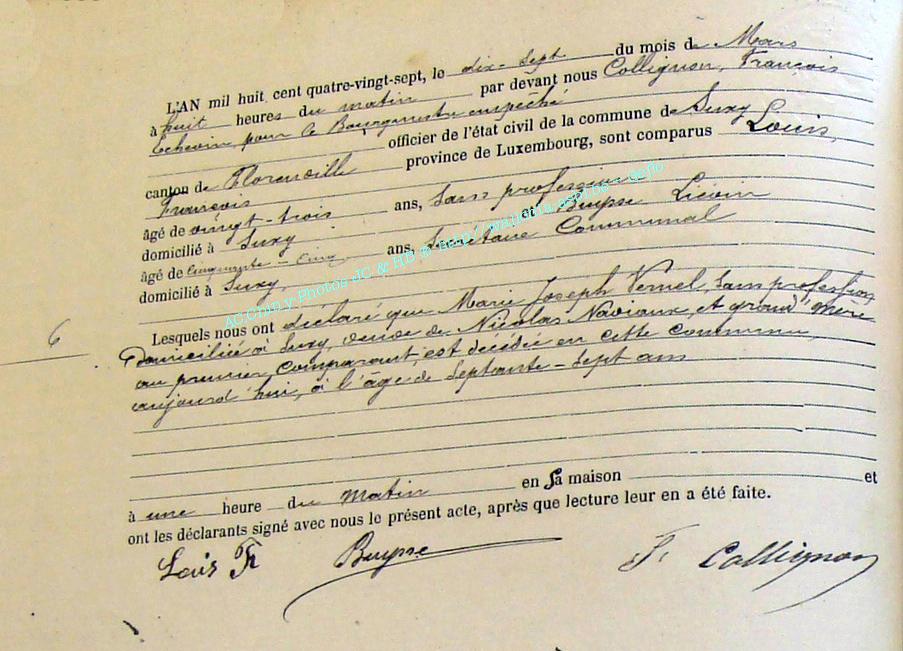 L'AN mil huit cent quatre-vingt-sept, le dix-sept du mois de Mars
à huit heures du matin par devant nous Collignon, François
Echevin, pour le Bourgmestre empêché
officier de l'état civil de la commune de Suxy
canton de Florenville province de Luxembourg, sont comparus Louis,
François
âgé de vingt-trois ans, Sans profession
domicilié à Suxy et Buysse
âgé de Cinquante-Cinq ans, Secrétaire Communal
domicilié à Suxy,
ACChiny Photos JC & HB © http://
Lesquels nous ont déclaré que Marie Joseph Vernel, Sans profession
Domiciliée à Suxy, veuve de Nicolas Naviaux, et grand'mère
au premier comparant, est décédée en cette commune,
aujourd'hui, à l'âge de Septante-Sept ans
6
à une heure du matin en sa maison et
ont les déclarants signé avec nous le présent acte, après que lecture leur en a été faite.
Louis Fr Buysse F. Collignon